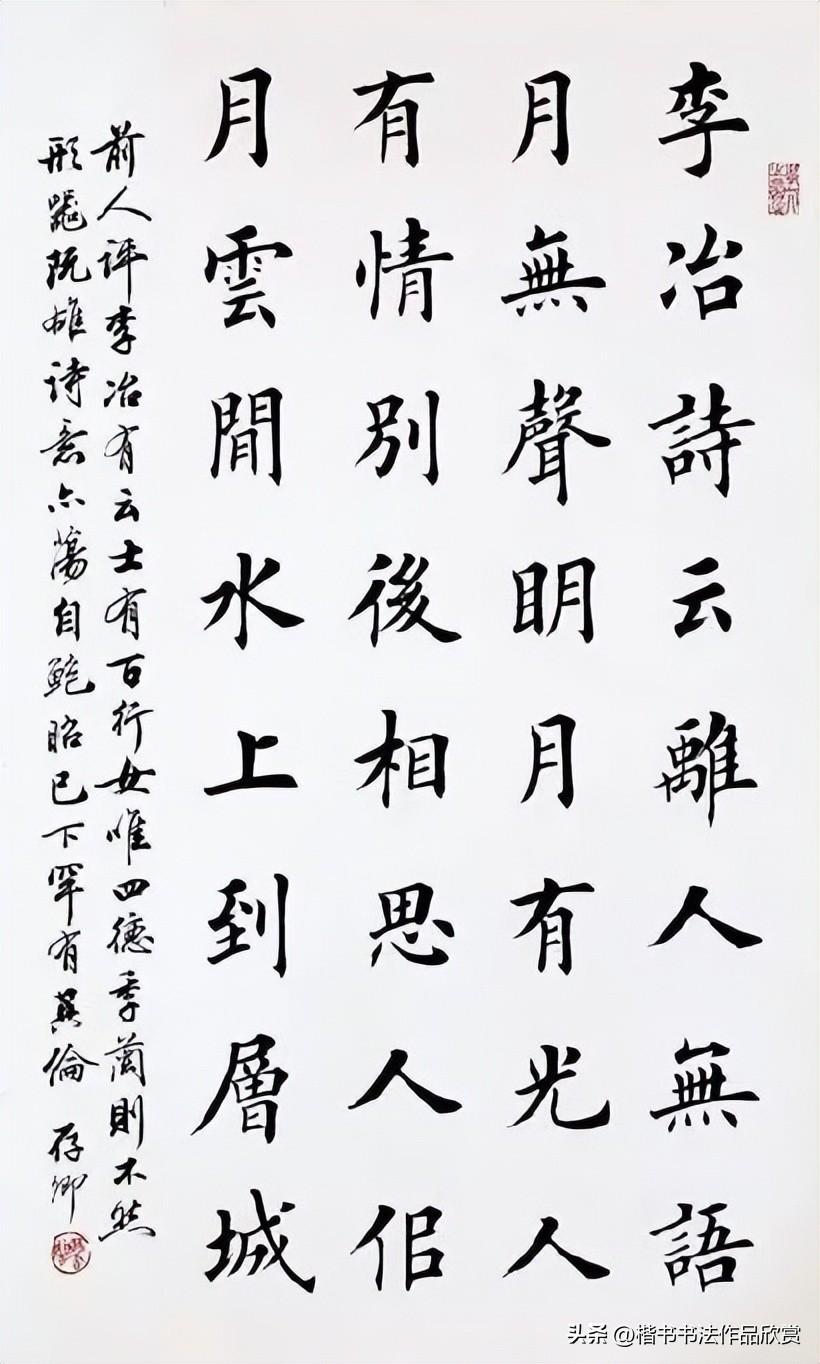 李冶詩云離人無語
月無聲明月有光人
有情別後相思人佀
月雲間水上到層城
前人評李冶有云士有百行女唯四德季蘭則不然
形器既雄詩意亦蕩自鮑昭已下罕有其倫 存卿
头条 @楷书书法作品欣赏